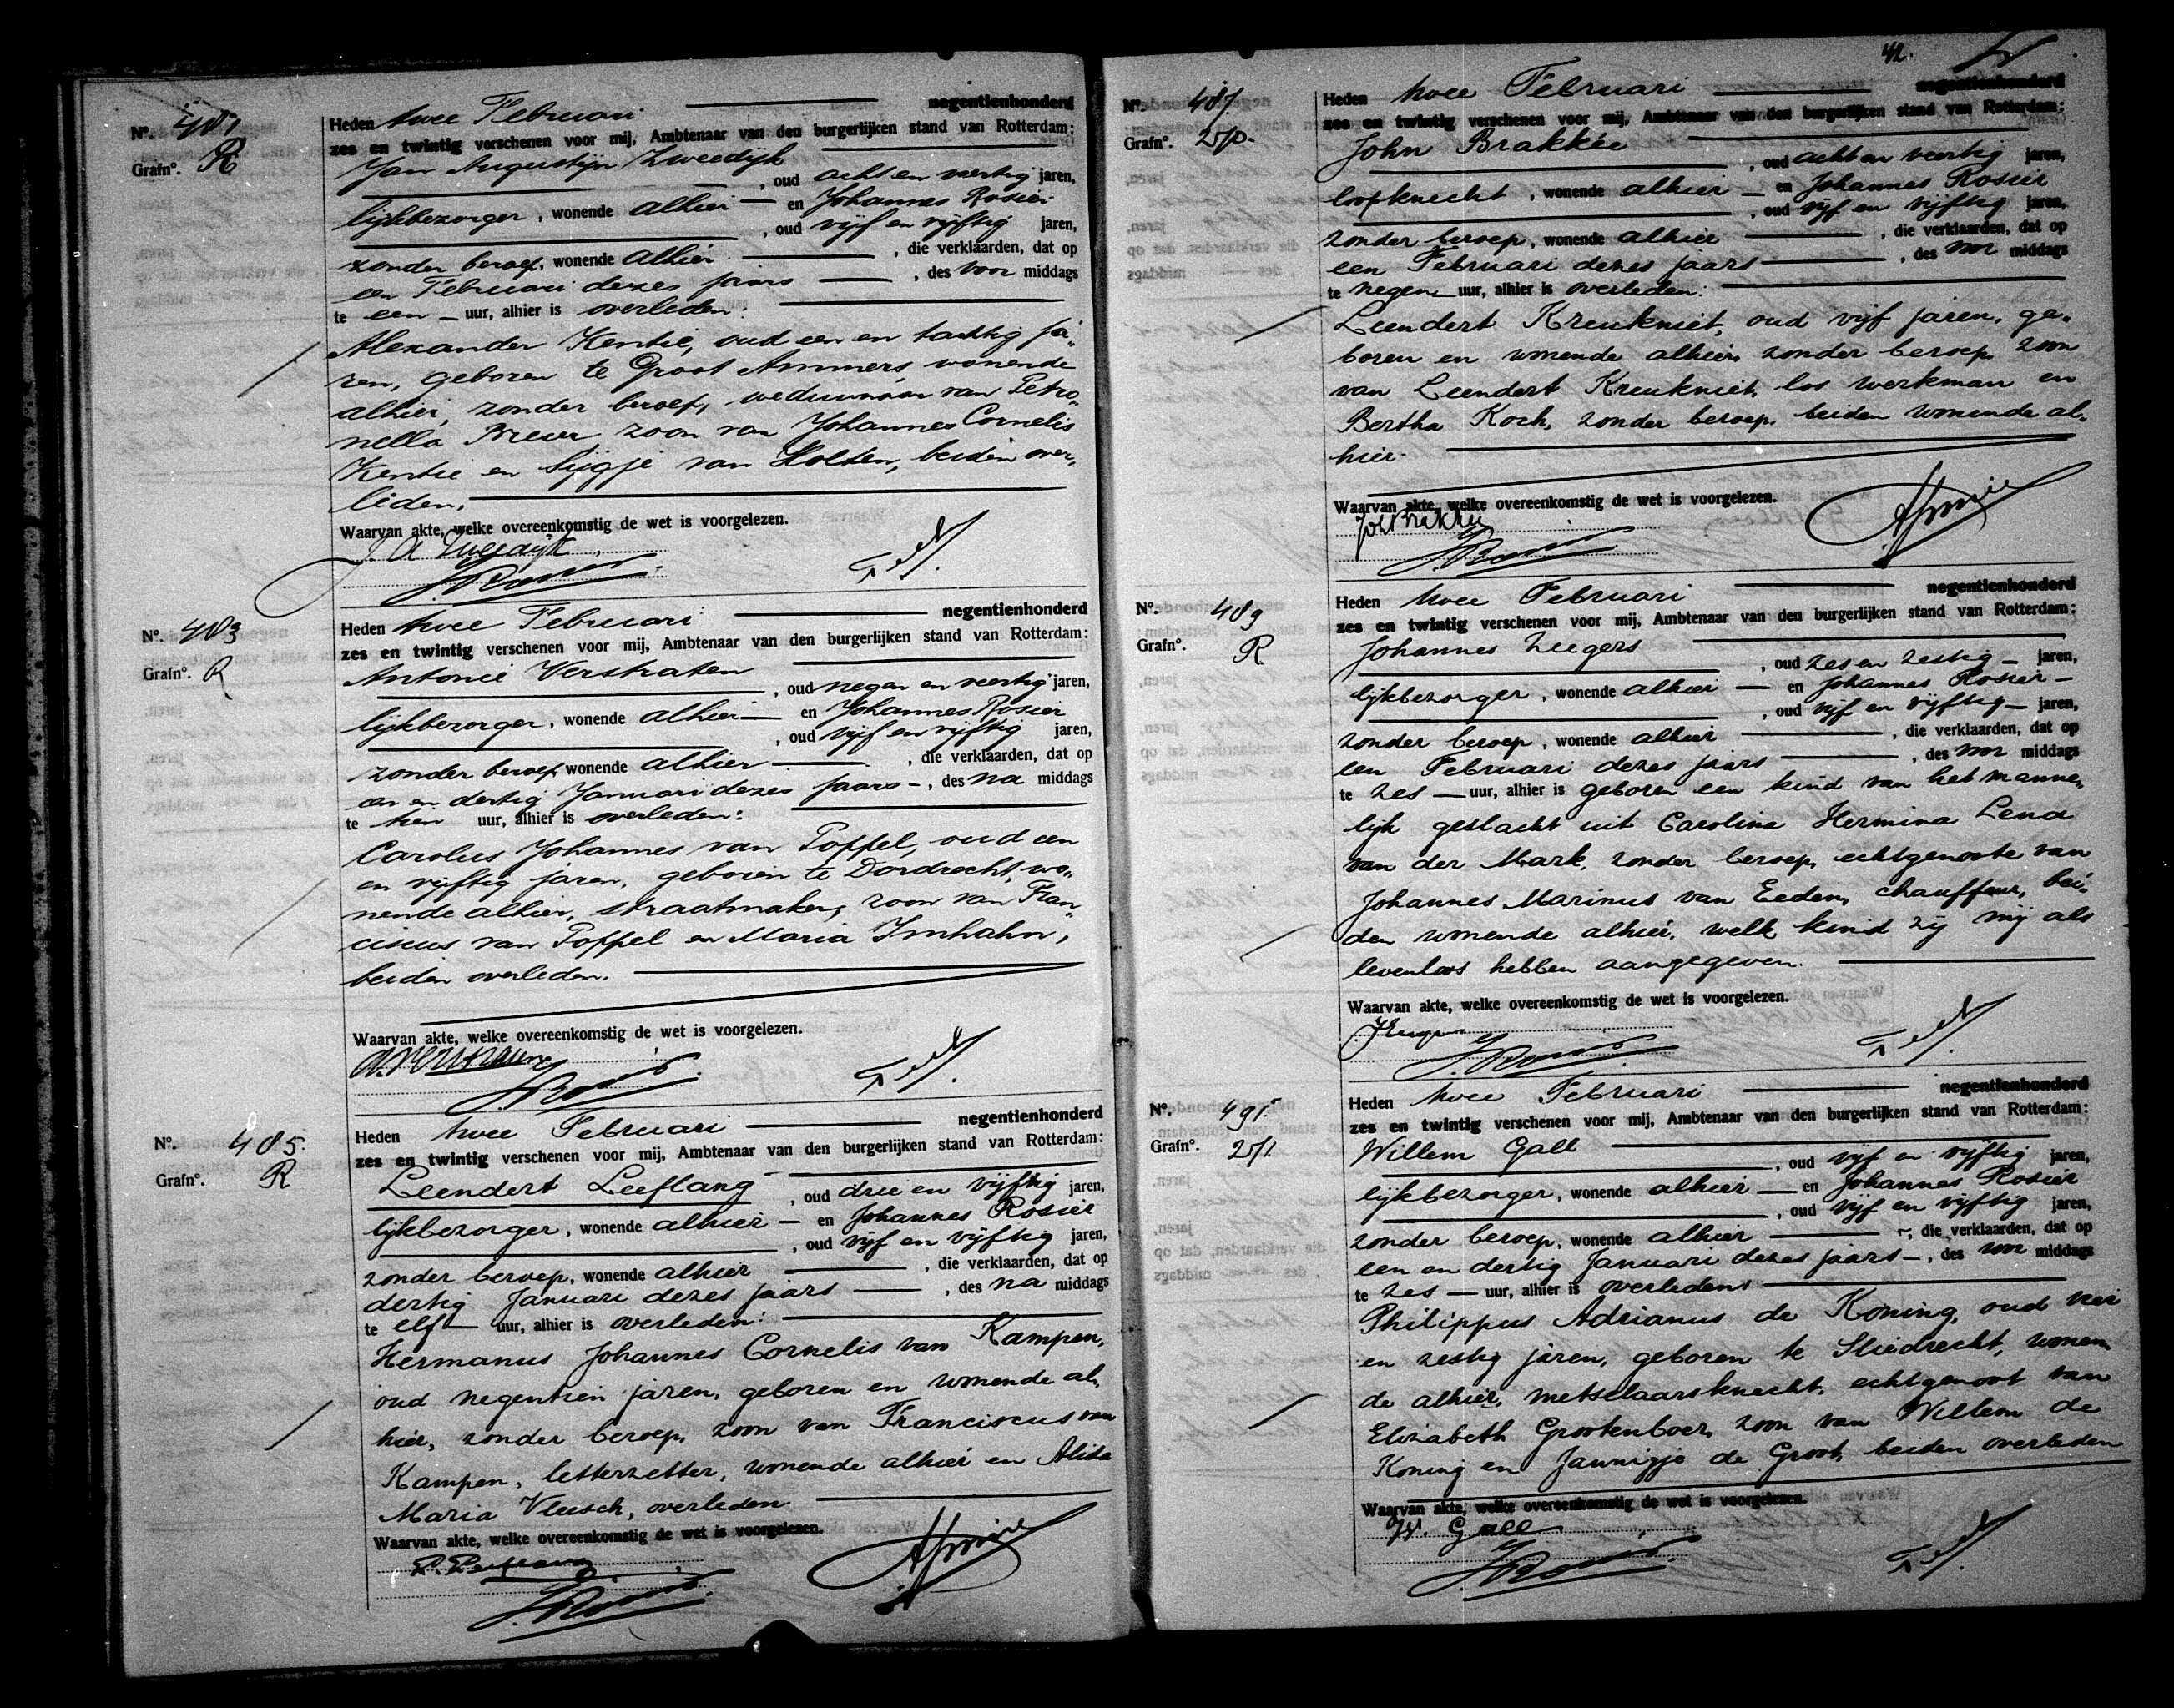 No. 481
Grafno. R
Heden twee Februari negentienhonderd
zes en twintig verschenen voor mij, Ambtenaar van den burgerlijken stand van Rotterdam:
Jan Augustijn Zweedijk
, oud acht en veertig jaren,
lijkbezorger, wonende alhier en Johannes Rosier
, oud vijf en vijftig jaren,
zonder beroep, wonende alhier , die verklaarden, dat op
een Februari dezes jaars , des voor middags
te een uur, alhier is overleden:
Alexander Kentie, oud een en tachtig ja-
ren, geboren te Groot Ammers, wonende
alhier, zonder beroep, weduwnaar van Petro-
nella Breur, zoon van Johannes Cornelis
Kentie en Sijgje van Holten, beiden over-
leden.
Waarvan akte, welke overeenkomstig de wet is voorgelezen.
No. 483
Grafno. R
Heden twee Februari negentienhonderd
zes en twintig verschenen voor mij, Ambtenaar van den burgerlijken stand van Rotterdam:
Antonie Verstraten
, oud negen en veertig jaren,
lijkbezorger, wonende alhier en Johannes Rosier
, oud vijf en vijftig jaren,
zonder beroep, wonende alhier , die verklaarden, dat op
een en dertig Januari dezes jaars , des na middags
te tien uur, alhier is overleden:
Carolus Johannes van Poppel, oud een
en vijftig jaren, geboren te Dordrecht, wo-
nende alhier, straatmaker, zoon van Fran-
ciscus van Poppel en Maria Imhahn,
beiden overleden.
Waarvan akte, welke overeenkomstig de wet is voorgelezen.
No. 485.
Grafno. R
Heden twee Februari negentienhonderd
zes en twintig verschenen voor mij, Ambtenaar van den burgerlijken stand van Rotterdam:
Leendert Leeflang
, oud drie en vijftig jaren,
lijkbezorger, wonende alhier en Johannes Rosier
, oud vijf en vijftig jaren,
zonder beroep, wonende alhier , die verklaarden, dat op
dertig Januari dezes jaars , des na middags
te elf uur, alhier is overleden:
Hermanus Johannes Cornelis van Kampen,
oud negentien jaren, geboren en wonende al-
hier, zonder beroep, zoon van Franciscus van
Kampen, letterzetter, wonende alhier en Alida
Maria Vleesch, overleden
Waarvan akte, welke overeenkomstig de wet is voorgelezen.
42.
No. 487.
Grafno. 250.
Heden twee Februari negentienhonderd
zes en twintig verschenen voor mij, Ambtenaar van den burgerlijken stand van Rotterdam:
John Brakkée
, oud acht en veertig jaren,
loopknecht, wonende alhier en Johannes Rosier
, oud vijf en vijftig jaren,
zonder beroep, wonende alhier , die verklaarden, dat op
een Februari dezes jaars , des voor middags
te negen uur, alhier is overleden:
Leendert Kreukniet, oud vijf jaren, ge-
boren en wonende alhier, zonder beroep, zoon
van Leendert Kreukniet, los werkman en
Bertha Koch, zonder beroep, beiden wonende al-
hier.
Waarvan akte, welke overeenkomstig de wet is voorgelezen.
No. 489
Grafno. R
Heden twee Februari negentienhonderd
zes en twintig verschenen voor mij, Ambtenaar van den burgerlijken stand van Rotterdam:
Johannes Zeegers
, oud zes en zestig jaren,
lijkbezorger, wonende alhier en Johannes Rosier
, oud vijf en vijftig jaren,
zonder beroep, wonende alhier , die verklaarden, dat op
een Februari dezes jaars , des voor middags
te zes uur, alhier is geboren een kind van het manne-
lijk geslacht uit Carolina Hermina Lena
van der Mark, zonder beroep, echtgenoote van
Johannes Marinus van Eeden, chauffeur, bei-
den wonende alhier, welk kind zij mij als
levenloos hebben aangegeven.
Waarvan akte, welke overeenkomstig de wet is voorgelezen.
No. 491.
Grafno. 251.
Heden twee Februari negentienhonderd
zes en twintig verschenen voor mij, Ambtenaar van den burgerlijken stand van Rotterdam:
Willem Gall
, oud vijf en vijftig jaren,
lijkbezorger, wonende alhier en Johannes Rosier
, oud vijf en vijftig jaren,
zonder beroep, wonende alhier , die verklaarden, dat op
een en dertig Januari dezes jaars , des voor middags
te zes uur, alhier is overleden:
Philippus Adrianus de Koning, oud vier
en zestig jaren, geboren te Sliedrecht, wonen-
de alhier, metselaarsknecht, echtgenoot van
Elizabeth Grootenboer, zoon van Willem de
Koning en Jannigje de Groot, beiden overleden
Waarvan akte, welke overeenkomstig de wet is voorgelezen.
W. Gall